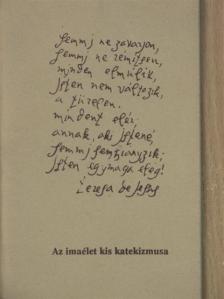 Semmi ne zavarjon,
semmi ne rémítsen,
minden elmúlik,
Isten nem változik,
a türelem
mindent elér,
annak, aki Istené,
semmi sem hiányzik:
Isten egymaga elég!
Teresa de Jesús
Az imaélet kis katekizmusa